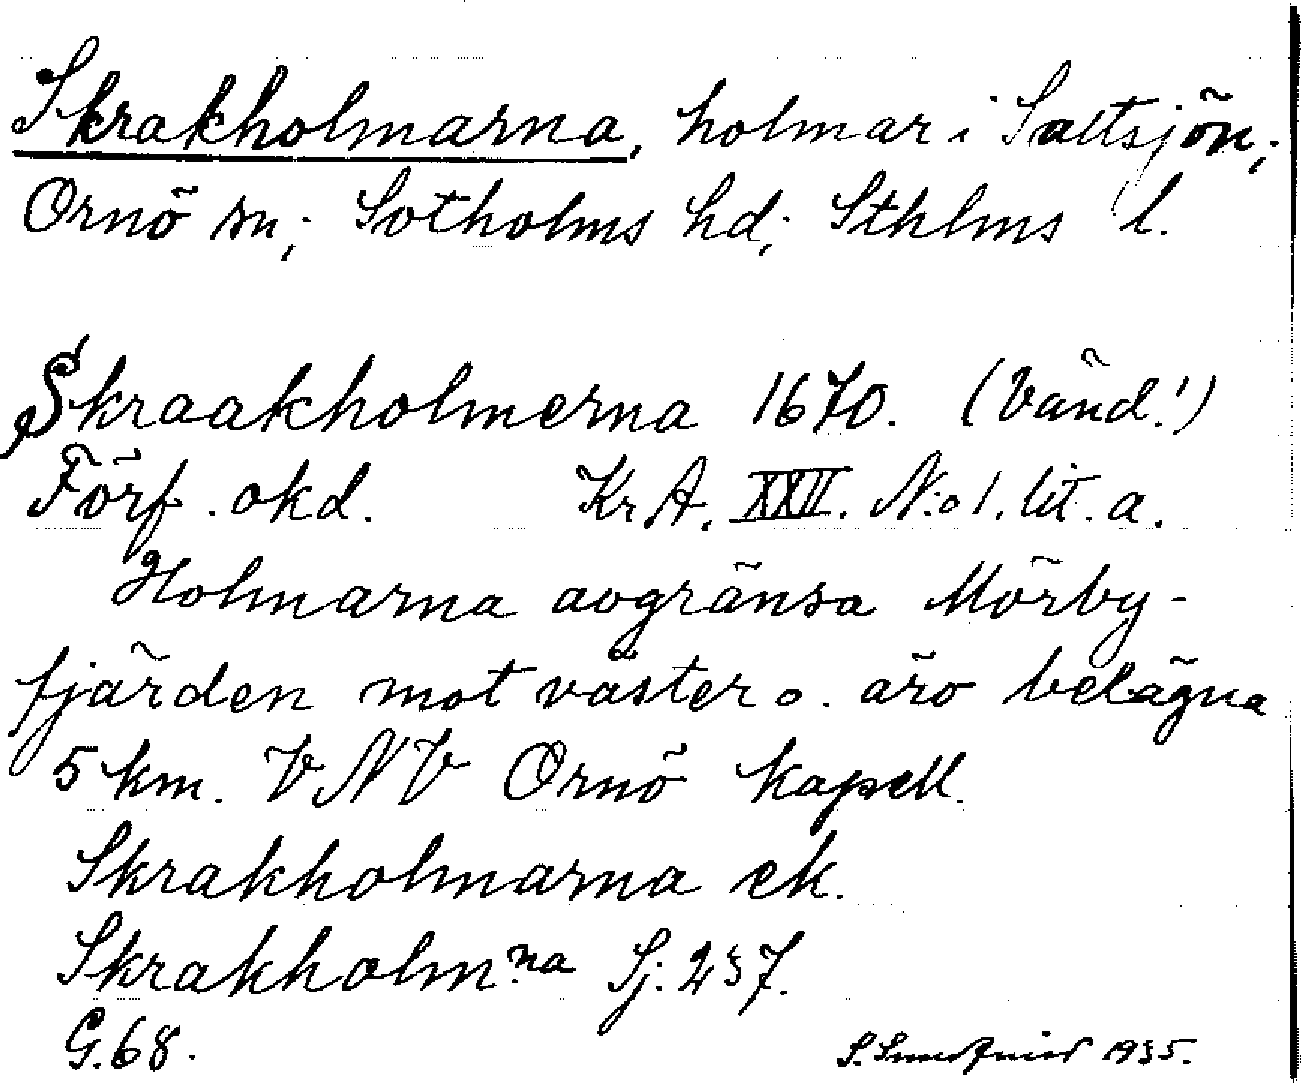 Skrakholmarna, holmar i Saltsjön;
Ornö sn; Sotholms hd; Sthlms l.
Skraakholmerna 1670. (Vänd!)
Förf. okd. Kr A. XXII. N:o 1. lit. a.
Holmarna avgränsa Mörby-
fjärden mot väster o. äro belägna
5 km. VNV Ornö kapell.
Skrakholmarna ek.
Skrakholm:na Sj: 237.
G. 68. S. 1935.